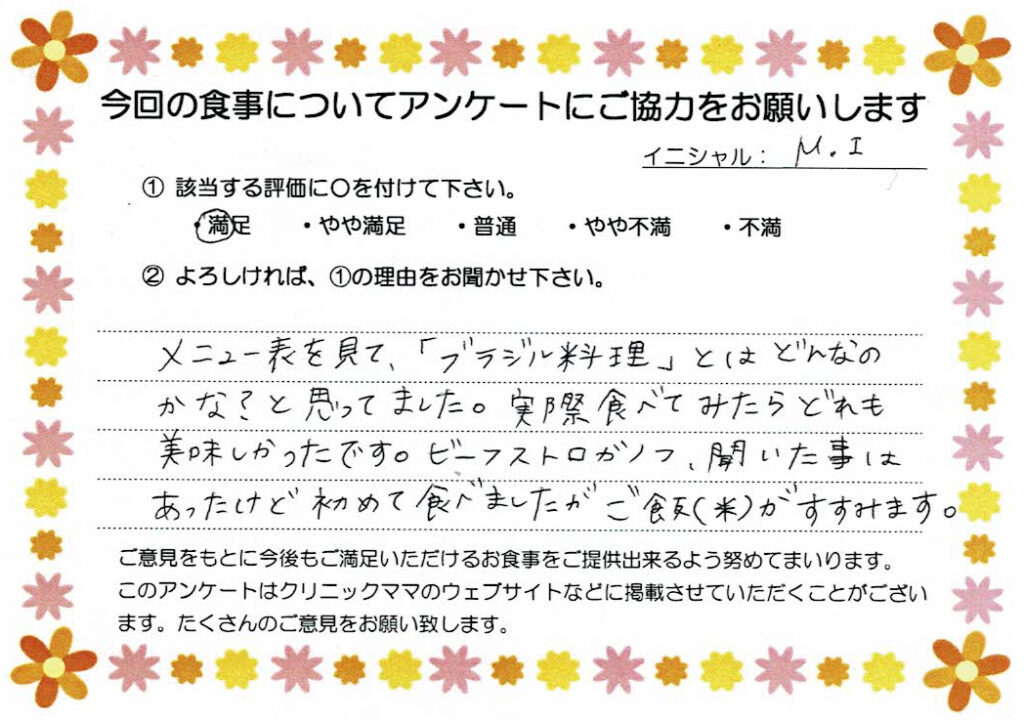 今回の食事についてアンケートにご協力をお願いします
イニシャル： M.I
① 該当する評価に〇を付けて下さい。
・満足 ・やや満足 ・普通 ・やや不満 ・不満
② よろしければ、①の理由をお聞かせ下さい。
メニュー表を見て、「ブラジル料理」とはどんなの
かな?と思ってました。実際食べてみたらどれも
美味しかったです。ビーフストロガノフ、聞いた事は
あったけど初めて食べましたがご飯(米)がすすみます。
ご意見をもとに今後もご満足いただけるお食事をご提供出来るよう努めてまいります。
このアンケートはクリニックママのウェブサイトなどに掲載させていただくことがござい
ます。たくさんのご意見をお願い致します。